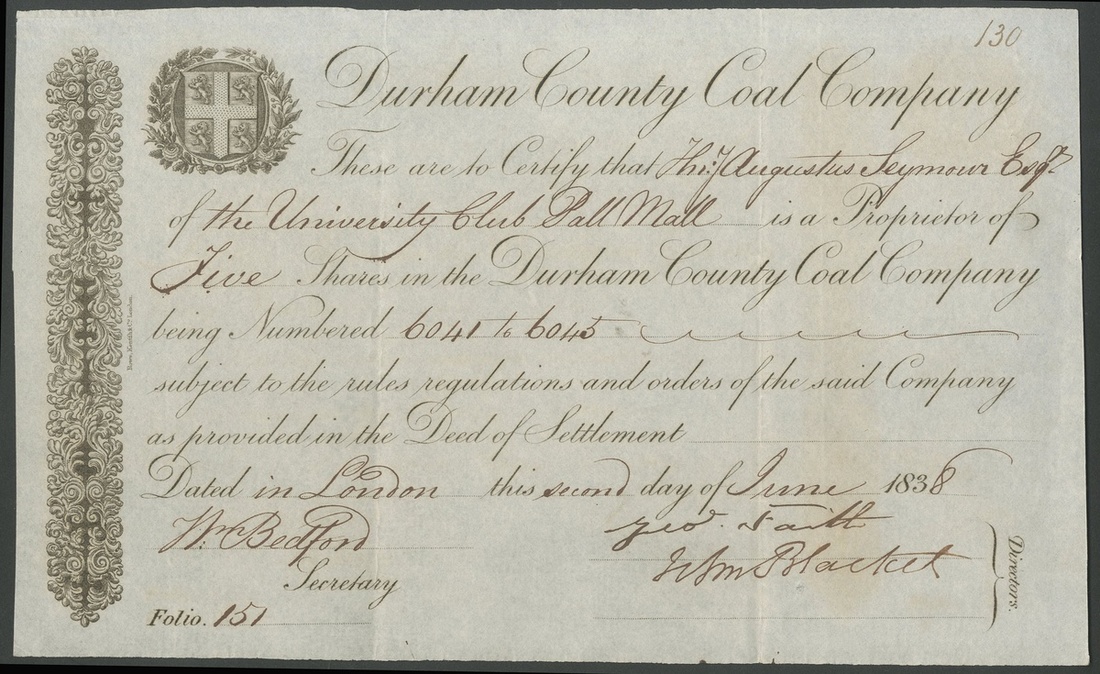 130
Durham County Coal Company
These are to Certify that Augustus Seymour Esqr.
of the University Club Pall Mall is a Proprietor of
Five Shares in the Durham County Coal Company
being Numbered 6041 to 6045
subject to the rules regulations and orders of the said Company
as provided in the Deed of Settlement
Dated in London this second day of June 1838
Wm Bedford
Geo. Faith
John Blacket
Directors.
Secretary
Folio. 151